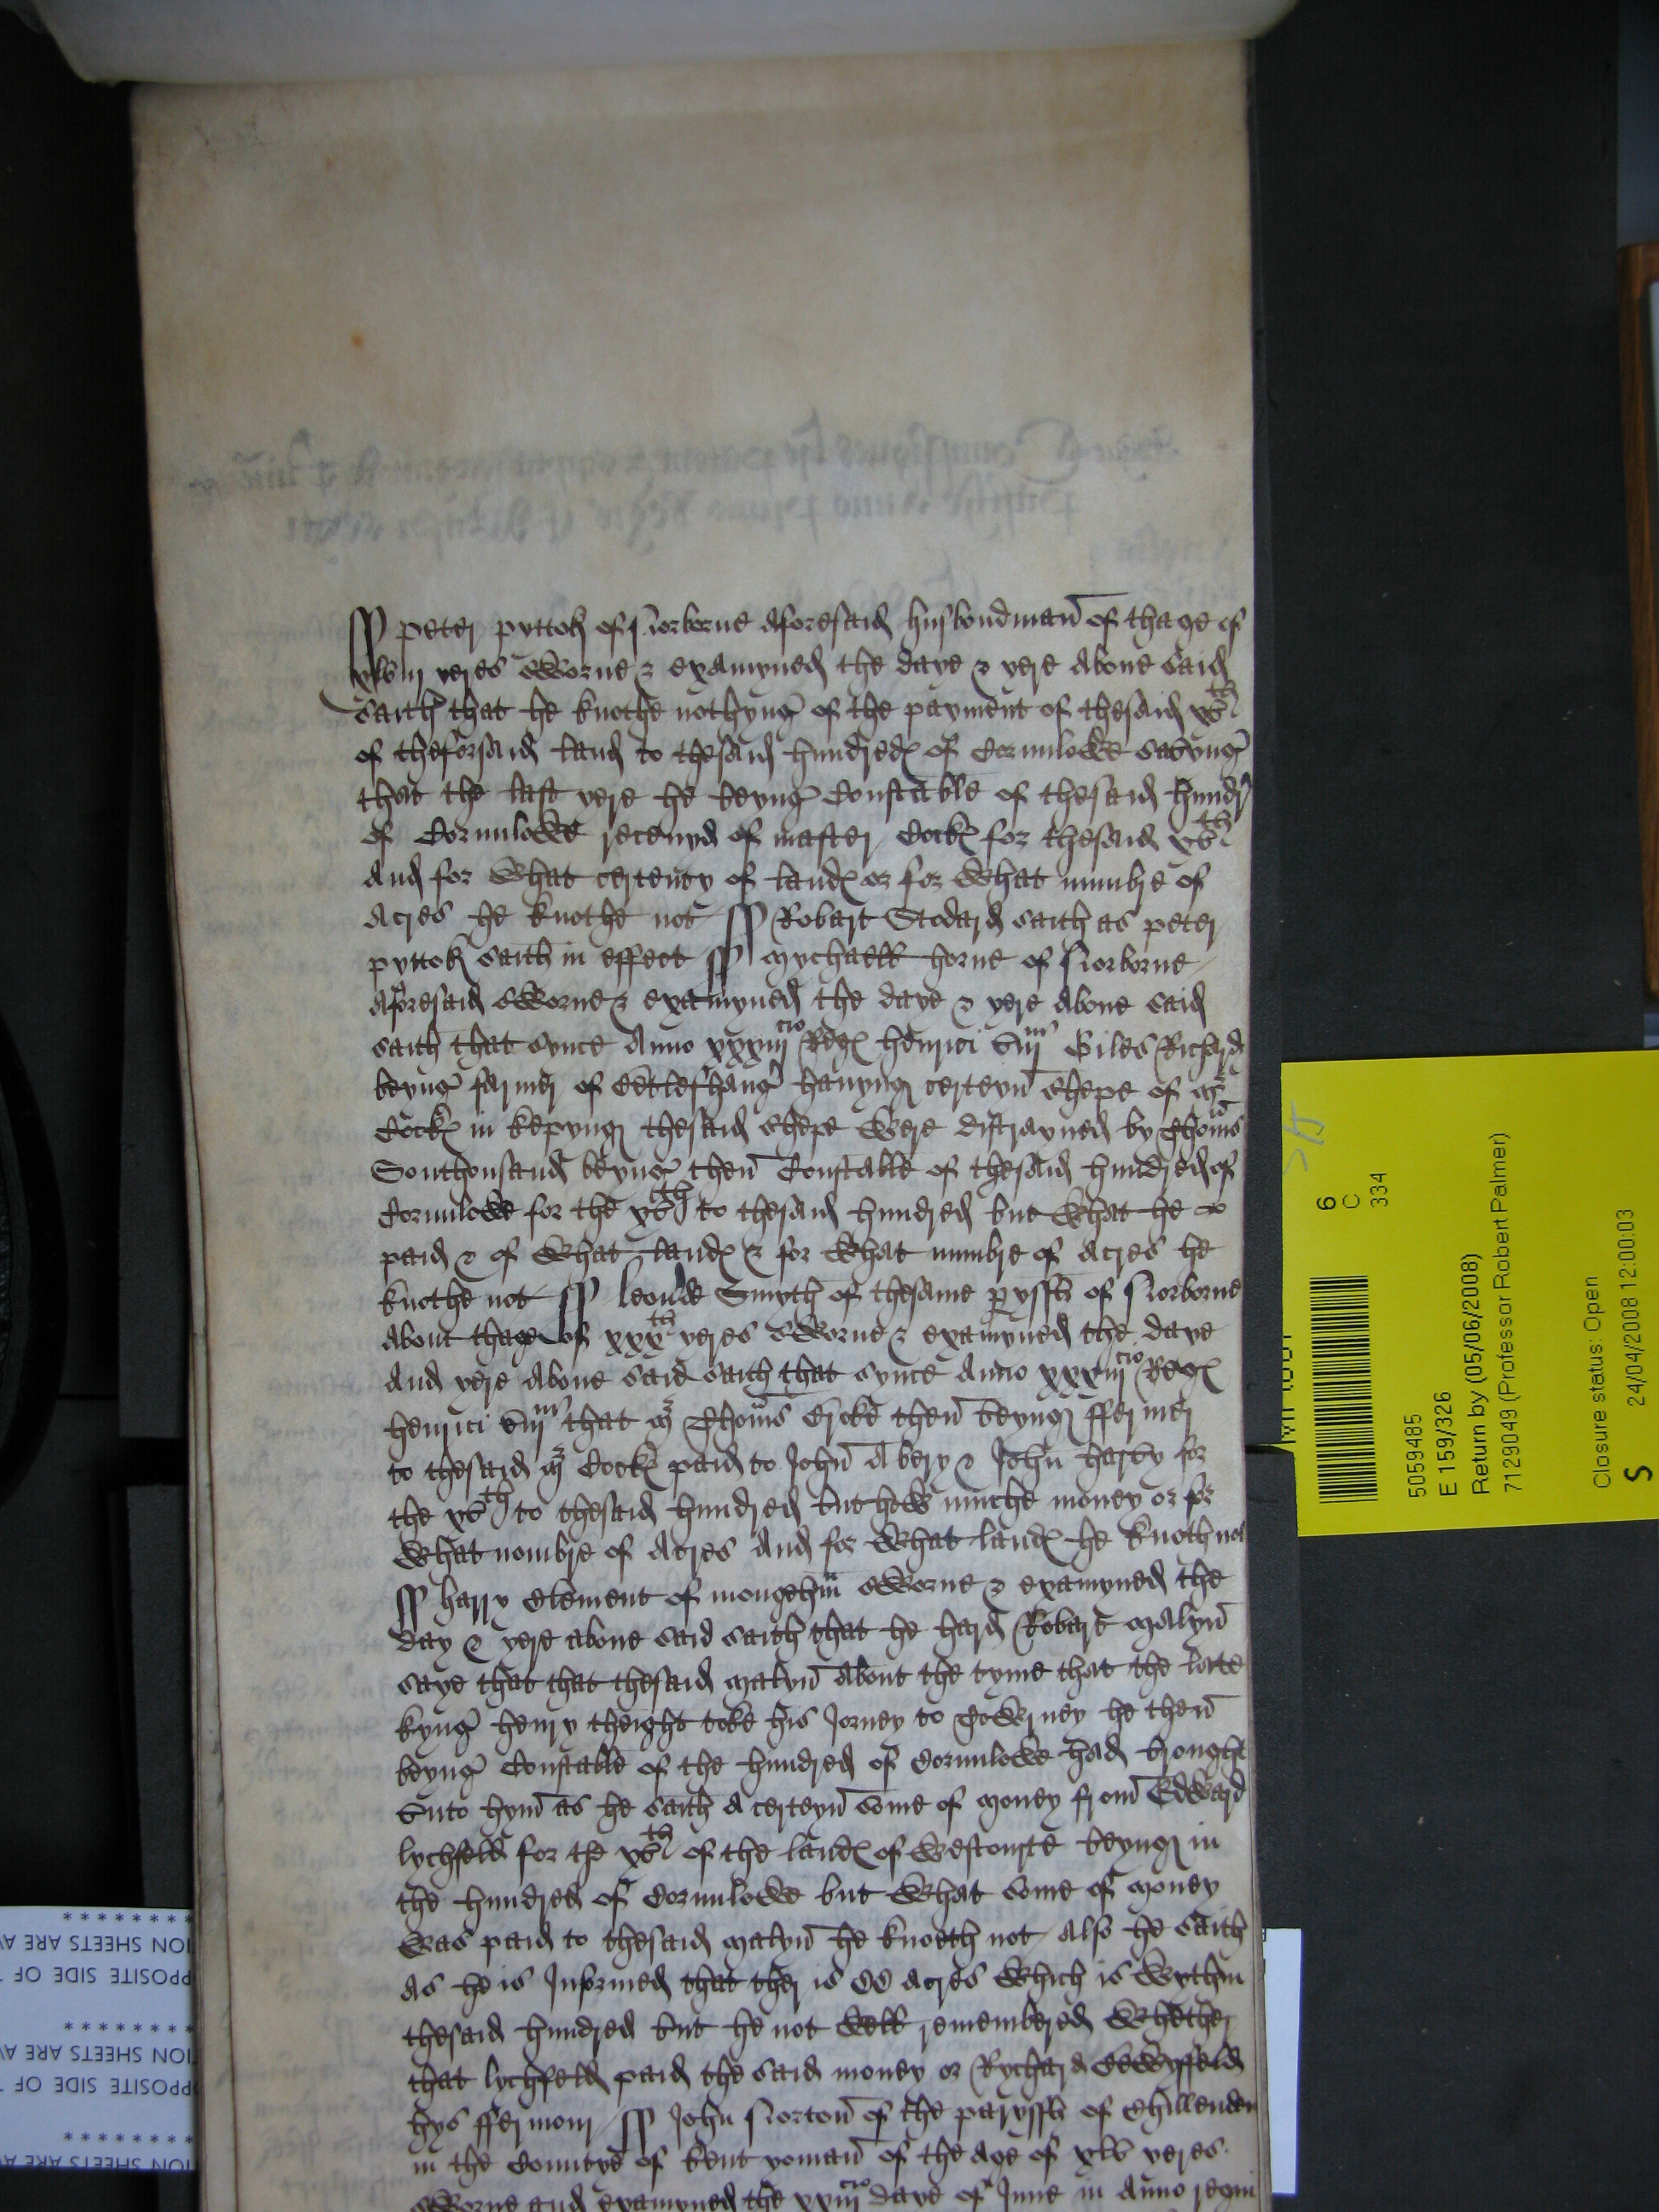 peter pyttok of Norborne aforesaid husbondman of thage of
xlviij yeres sworne & examyned the daye & yere above said
saith that he knothe nothyng of the payment of thesaid xvth
of theforsaid land to thesaid hundred of Cornilowe savyng
that the last yere he beyng Constable of thesaid hundr
of Cornilowe receuyd of master Cock for thesaid xvth
and for what certenty of land or for what numbre of
acres he knothe not Robart Stodard saith as peter
pyttok saith in effect mychaell horne of Norborne
aforesaid sworne & examyned the daye & yere above said
saith that synce Anno xxxiiijcto Reg henrici viij Giles Richard
beyng farmer of hauyng certeyn shepe of mr
Cock in kepyng thesaid shepe were distrayned by Thoms
Southousand beyng then Constable of thesaid hundred of
Cornilowe for the xvth to thesaid hundred but what he
paid & of what land & for what numbre of acres he
knothe not Smyth of thesame paryssh of Norborne
about thage of xxxth yeres sworne & examyned the daye
and yere above said saith that synce Anno xxxiiijcto Reg
henrici viij that mr Thoms then beyng ffermer
to thesaid mr Cock paid to John Abery & John harvy for
the xvth to thesaid hundred but how muche money or for
what nombre of acres and for what land he knoth not
harry Clement of mongehm sworne & examyned the
day & yere above said saith that he hard Robart malyn
saye that that thesaid malyn about the tyme that the late
kyng henry theight toke his Jorney to he then
beyng Constable of the hundred of Cornilowe had brought
vnto hym as he saith a certeyn some of money from Edward
lychfeld for the xvth of the land of Westcourte beyng in
the hundred of Cornilowe but what some of money
was paid to thesaid malyn he knoeth not also he saith
as he is Informed that ther is CC acres which is wythin
thesaid hundred but he not well remembered whether
that lychfeld paid the said money or Rychard
hys ffermor John Norton of the paryssh of Chillenden
in the Countye of kent yoman of the age of xlv yeres
sworne and examyned the daye of June in anno regni
6
C
334
5059485
E 159/326
Return by (05/06/2008)
7129049 (Professor Robert Palmer)
Closure status: Open
24/04/2008 12:00:03
S
* * * * * * * *
ION SHEETS ARE AV
PPOSITE SIDE OF
* * * * * * * *
ION SHEETS ARE AV
PPOSITE SIDE OF
* * * * * * * *
ION SHEETS ARE AV